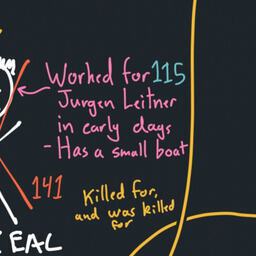 Worked for 115
Jurgen Leitner
in early days
- Has a small boat
141
Killed for,
and was killed
for
EAL